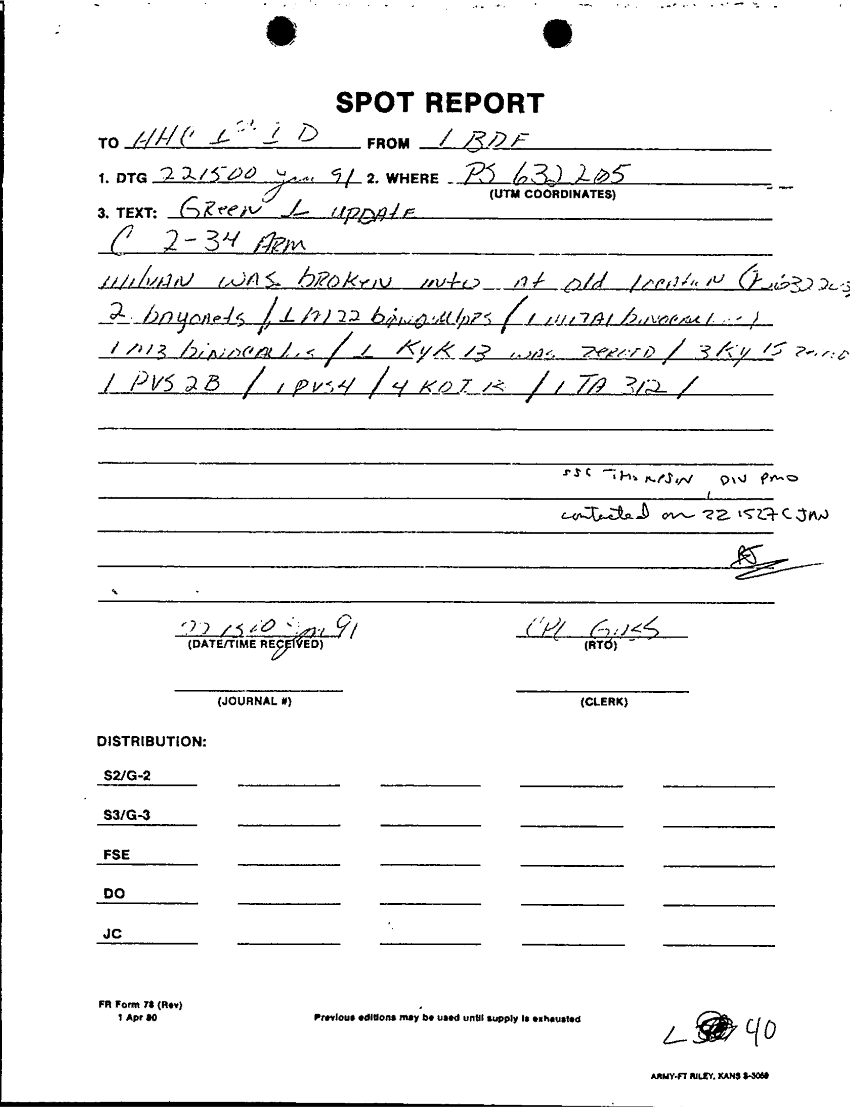 SPOT REPORT
TO HHC 1st I D FROM 1 BDE
1. DTG 221500 Jan 91 2. WHERE PS 632205
(UTM COORDINATES)
3. TEXT: GReeN 1 UPDATE
C 2-34 ARM
milvAN WAS bROKeN into At old locatioN
2 bayonets / 1 M22 / 1
1 M13 / 1 KYK 13 was zeroed / 3 KY 15
1 PVS 2B / 1 PVS4 / 4 / 1 TA 312 /
SSG THOMPSON, DIV PMO
contacted on 22 1527C JAN
22 1510 Jan 91 CPL
(DATE/TIME RECEIVED) (RTO)
(JOURNAL #) (CLERK)
DISTRIBUTION:
S2/G-2
S3/G-3
FSE
DO
JC
FR Form 78 (Rev)
1 Apr 80 Previous editions may be used until supply is exhausted
L 40
ARMY-FT RILEY, KANS S-3059